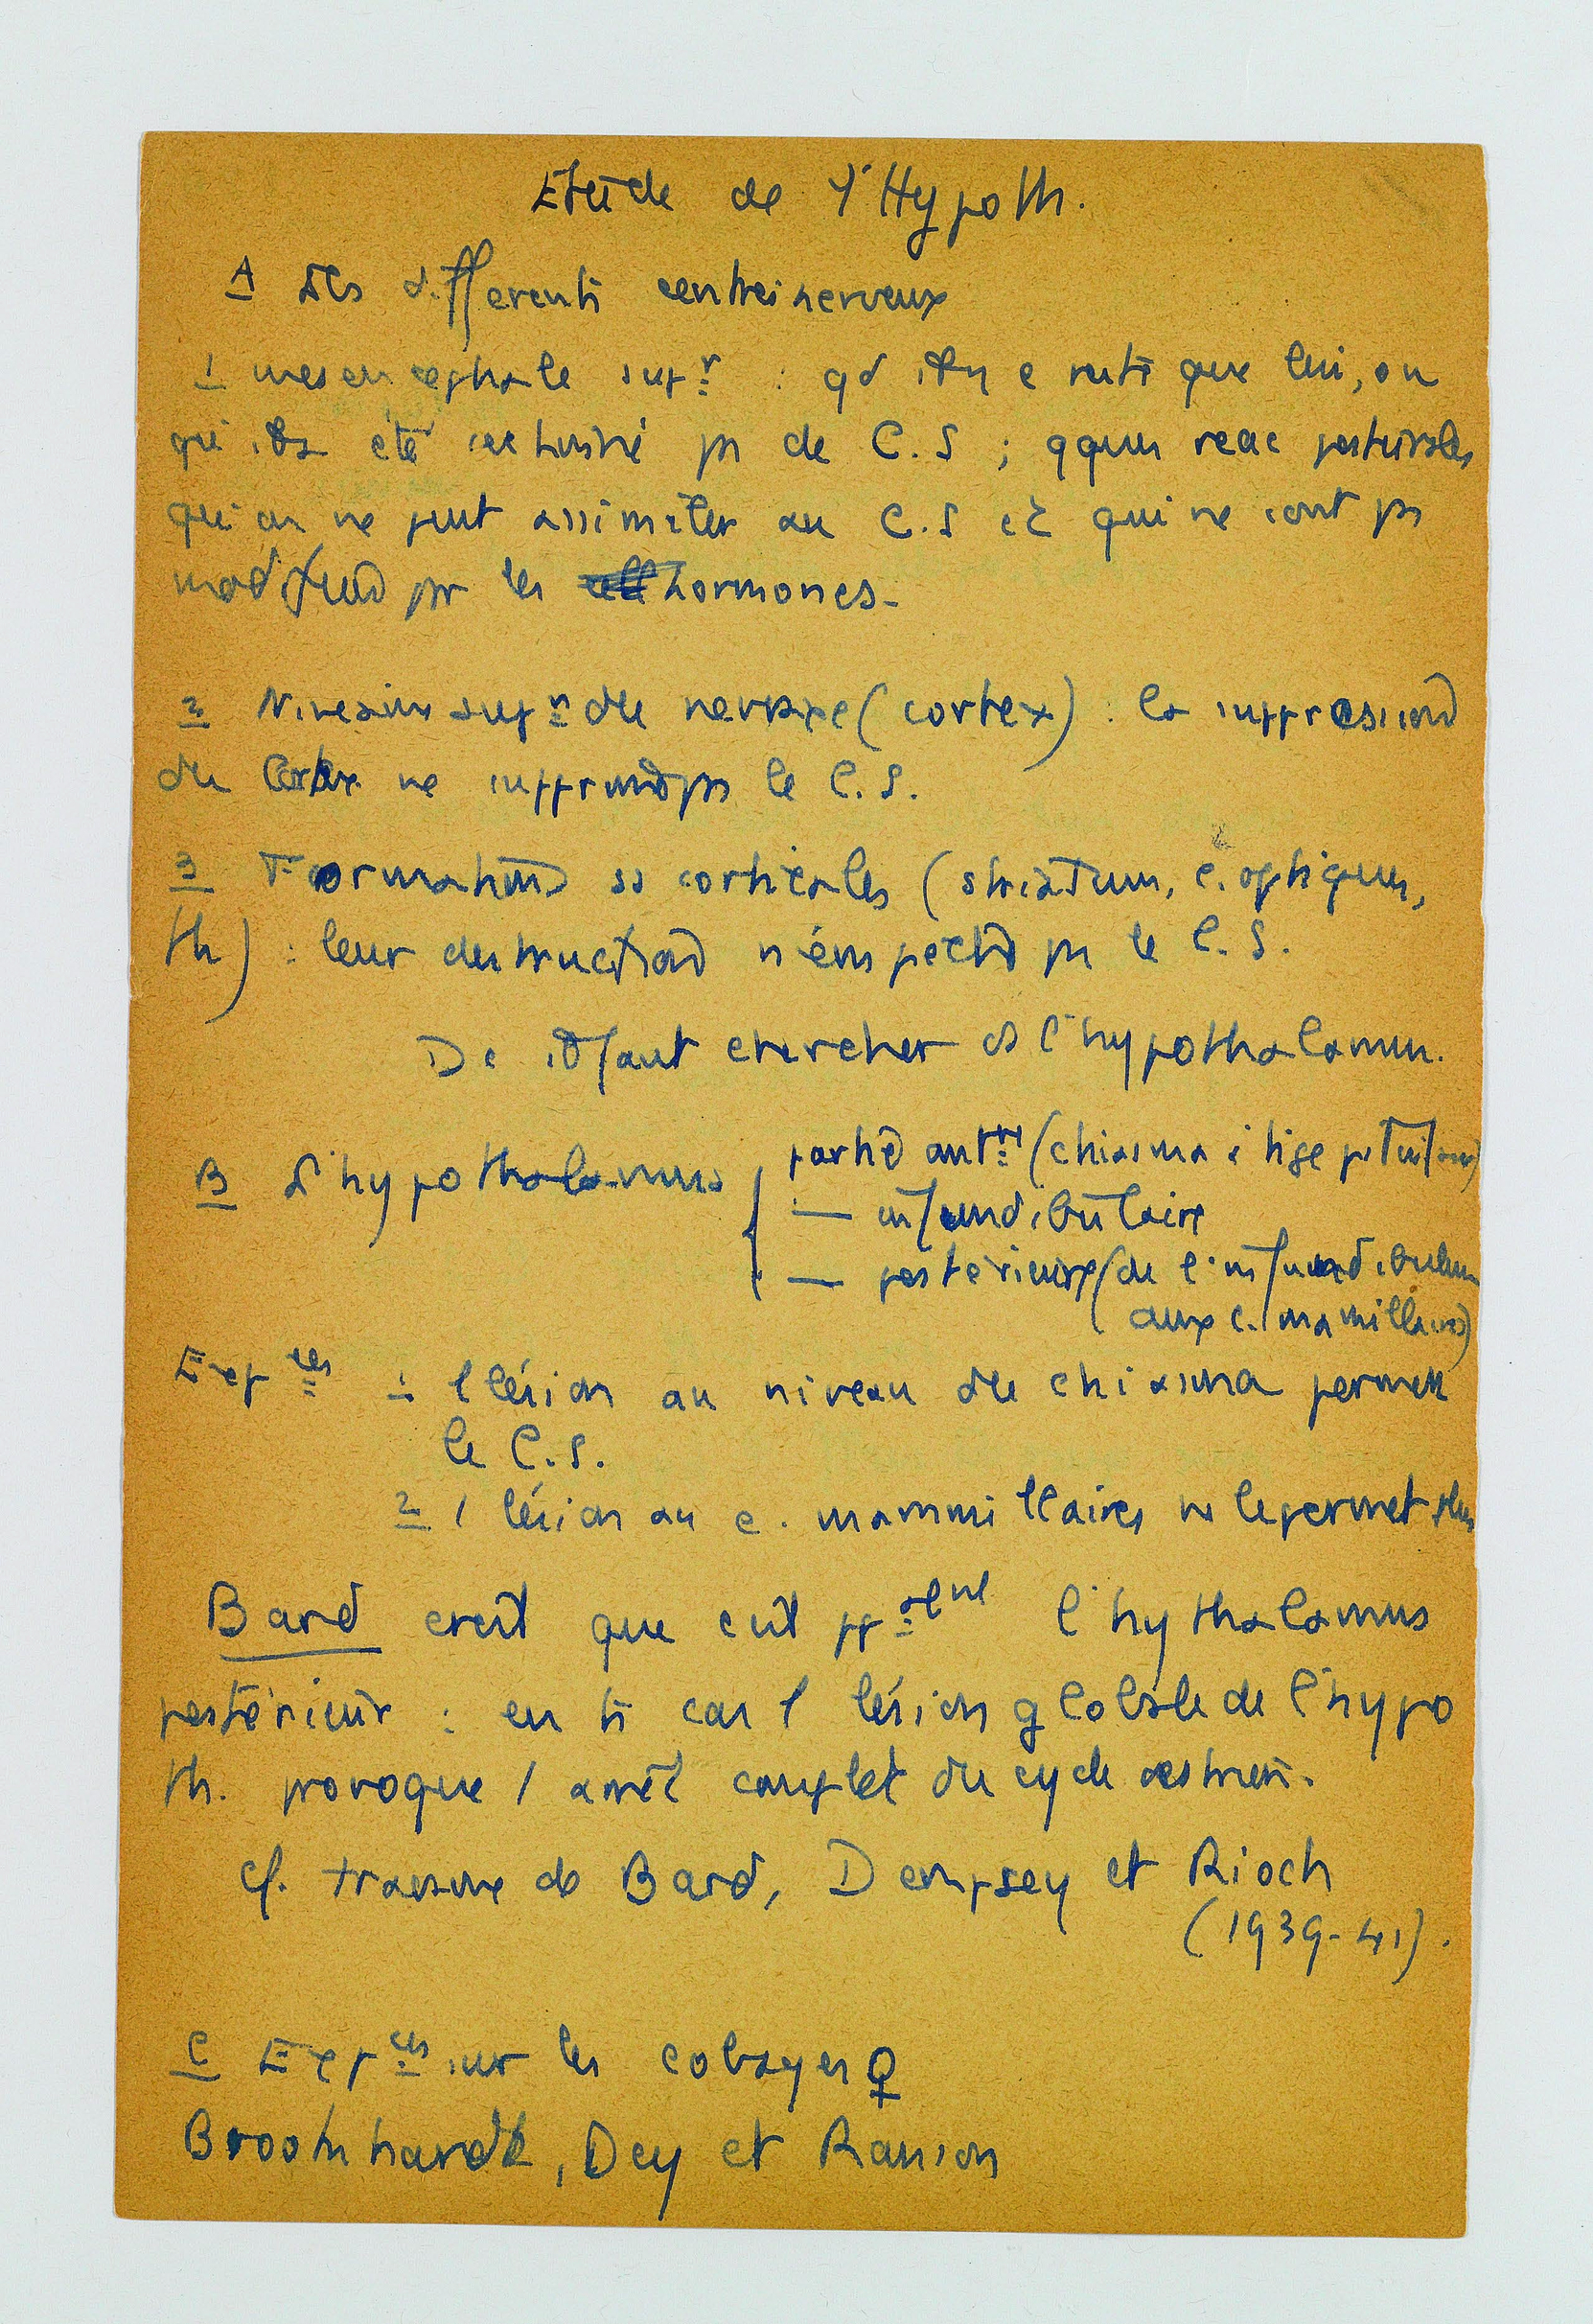 Etude de l'Hypoth.
A Les differents centres nerveux
1 mesencephale supr : qd il n'y a que lui, on
qu'il a été pas de C.S ; qques reac posturales
qu'on ne peut assimiler au C.S et qui ne sont pas
modifiées par les hormones.
2 Niveaux supr du nevraxe (cortex) : la suppression
du Cortex ne supprime pas le C.S.
3 Formations ss corticales (striatum, c. optiques,
th) : leur destruction n'empêche pas le C.S.
Dc il faut chercher ds l'hypothalamus.
B L'hypothalamus
partie antre (chiasma à tige pituitaire)
— infundibulaire
— postérieure (de l'infundibulum
aux c. mamillaires)
Expces 1 1 lésion au niveau du chiasma permet
le C.S.
2 1 lésion au c. mammillaires ne le permet plus
Bard croit que c'est ppalent l'hythalamus
postérieur : en ts cas 1 lésion globale de l'hypo
th. provoque 1 arrêt complet du cycle oestrien.
cf. travaux de Bard, Dempsey et Rioch
(1939-41).
C Expces sur les cobayes ♀
Brookhardt, Dey et Ranson